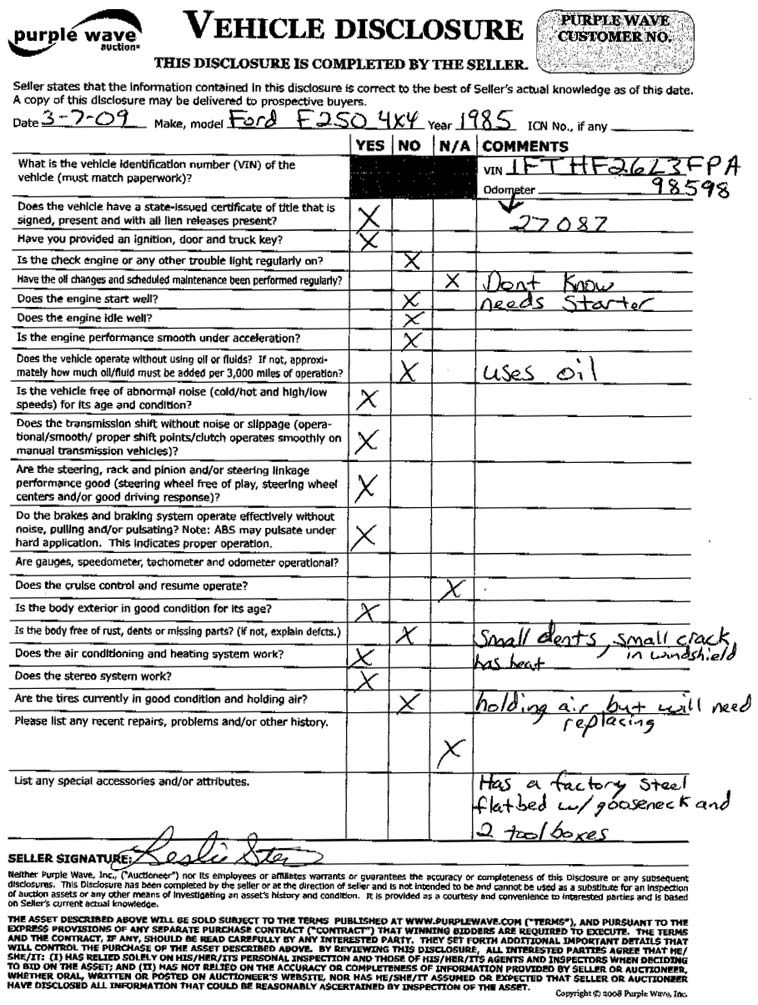 purple wave
auction®
VEHICLE DISCLOSURE
PURPLE WAVE
CUSTOMER NO.
THIS DISCLOSURE IS COMPLETED BY THE SELLER.
Seller states that the information contained in this disclosure is correct to the best of Seller's actual knowledge as of this date.
A copy of this disclosure may be delivered to prospective buyers.
Date 3-7-09 Make, model Ford F250 4x4 Year 1985 ICN No., if any
YES NO N/A COMMENTS
What is the vehicle identification number (VIN) of the
vehicle (must match paperwork)?
VIN 1FTHF26L3FPA
Odometer 98598
Does the vehicle have a state-issued certificate of title that is
signed, present and with all lien releases present? X
27087
Have you provided an ignition, door and truck key? X
Is the check engine or any other trouble light regularly on? X
Have the oil changes and scheduled maintenance been performed regularly? X Dont Know
Does the engine start well? X needs Starter
Does the engine idle well? X
Is the engine performance smooth under acceleration? X
Does the vehicle operate without using oil or fluids? If not, approxi-
mately how much oil/fluid must be added per 3,000 miles of operation? X uses oil
Is the vehicle free of abnormal noise (cold/hot and high/low
speeds) for its age and condition? X
Does the transmission shift without noise or slippage (opera-
tional/smooth/ proper shift points/clutch operates smoothly on
manual transmission vehicles)? X
Are the steering, rack and pinion and/or steering linkage
performance good (steering wheel free of play, steering wheel
centers and/or good driving response)? X
Do the brakes and braking system operate effectively without
noise, pulling and/or pulsating? Note: ABS may pulsate under
hard application. This indicates proper operation. X
Are gauges, speedometer, tachometer and odometer operational?
Does the cruise control and resume operate? X
Is the body exterior in good condition for its age? X
Is the body free of rust, dents or missing parts? (if not, explain defcts.) X Small dents, small crack
in windshield
Does the air conditioning and heating system work? X has heat
Does the stereo system work? X
Are the tires currently in good condition and holding air? X holding air but will need
replacing
Please list any recent repairs, problems and/or other history.
X
List any special accessories and/or attributes.
Has a factory Steel
flatbed w/ gooseneck and
2 toolboxes
SELLER SIGNATURE: Leslie
Neither Purple Wave, Inc., ("Auctioneer") nor its employees or affiliates warrants or guarantees the accuracy or completeness of this Disclosure or any subsequent
disclosures. This Disclosure has been completed by the seller or at the direction of seller and is not intended to be and cannot be used as a substitute for an inspection
of auction assets or any other means of investigating an asset's history and condition. It is provided as a courtesy and convenience to interested parties and is based
on Seller's current actual knowledge.
THE ASSET DESCRIBED ABOVE WILL BE SOLD SUBJECT TO THE TERMS PUBLISHED AT WWW.PURPLEWAVE.COM ("TERMS"), AND PURSUANT TO THE
EXPRESS PROVISIONS OF ANY SEPARATE PURCHASE CONTRACT ("CONTRACT") THAT WINNING BIDDERS ARE REQUIRED TO EXECUTE. THE TERMS
AND THE CONTRACT, IF ANY, SHOULD BE READ CAREFULLY BY ANY INTERESTED PARTY. THEY SET FORTH ADDITIONAL IMPORTANT DETAILS THAT
WILL CONTROL THE PURCHASE OF THE ASSET DESCRIBED ABOVE. BY REVIEWING THIS DISCLOSURE, ALL INTERESTED PARTIES AGREE THAT HE/
SHE/IT: (I) HAS RELIED SOLELY ON HIS/HER/ITS PERSONAL INSPECTION AND THOSE OF HIS/HER/ITS AGENTS AND INSPECTORS WHEN DECIDING
TO BID ON THE ASSET; AND (II) HAS NOT RELIED ON THE ACCURACY OR COMPLETENESS OF INFORMATION PROVIDED BY SELLER OR AUCTIONEER,
WHETHER ORAL, WRITTEN OR POSTED ON AUCTIONEER'S WEBSITE, NOR HAS HE/SHE/IT ASSUMED OR EXPECTED THAT SELLER OR AUCTIONEER
HAVE DISCLOSED ALL INFORMATION THAT COULD BE REASONABLY ASCERTAINED BY INSPECTION OF THE ASSET.
Copyright © 2008 Purple Wave, Inc.